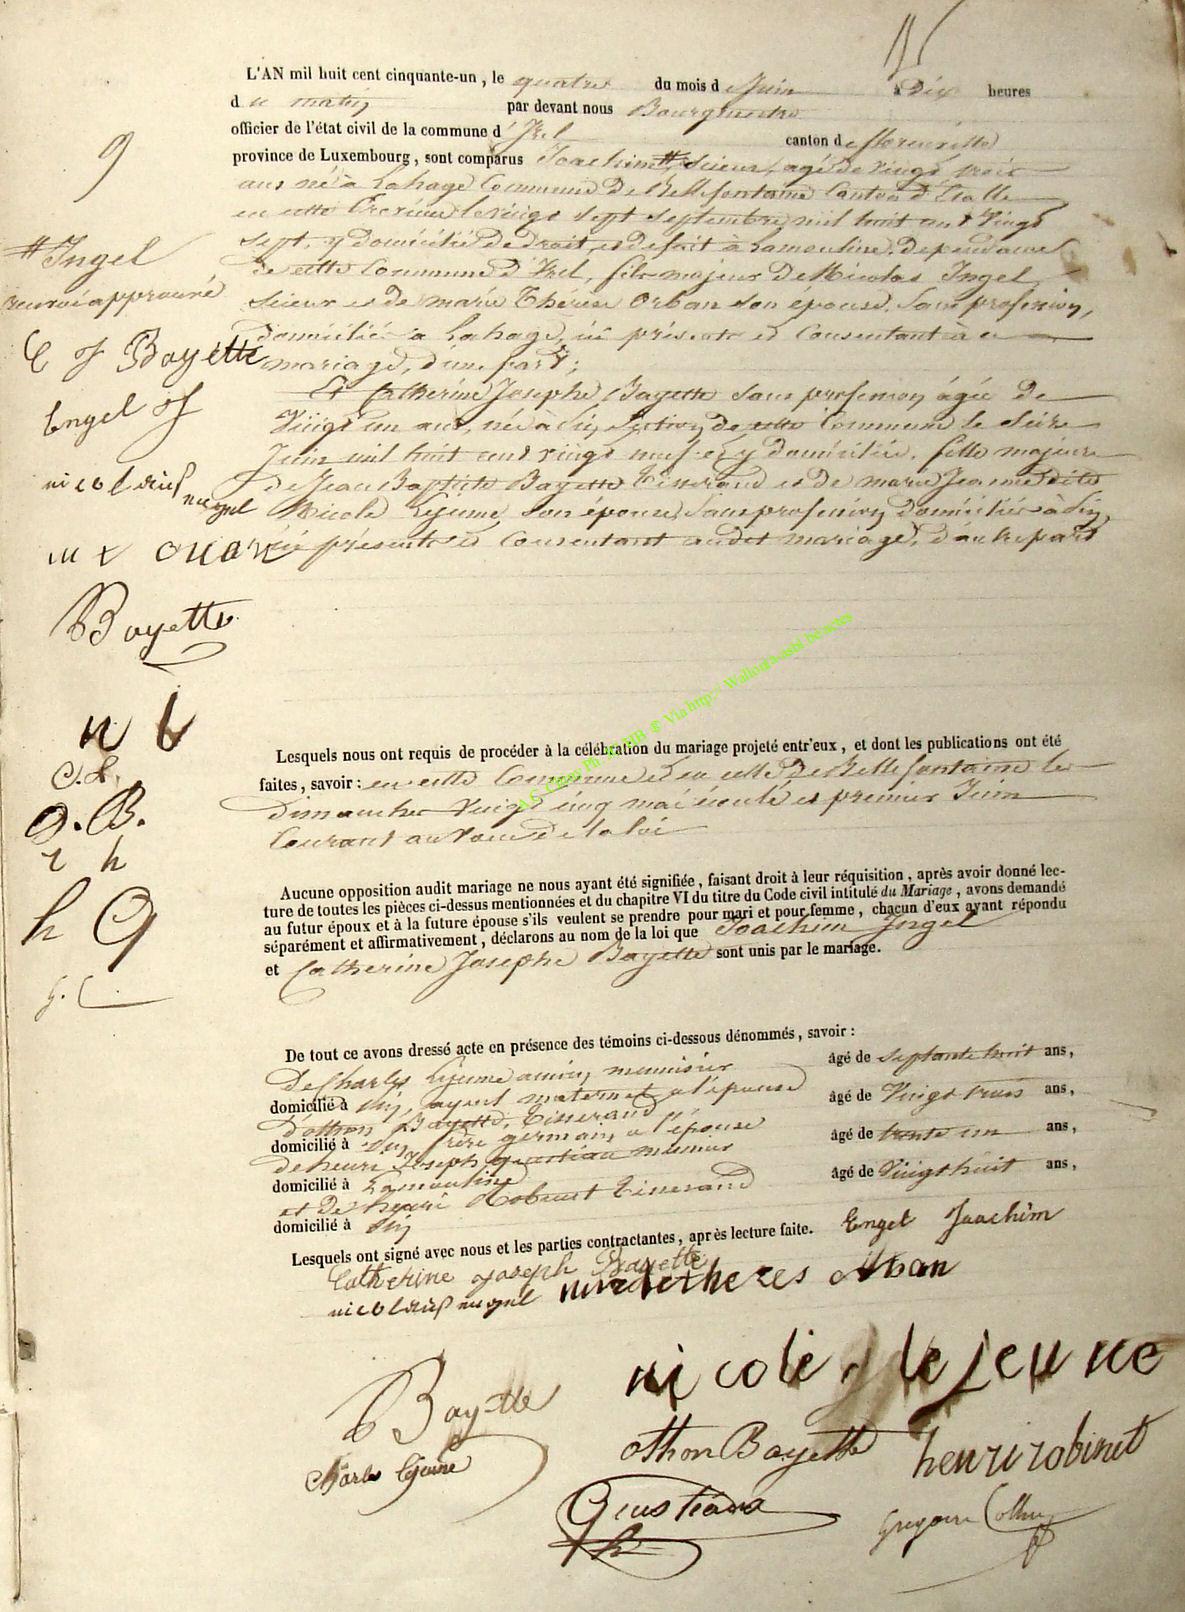 L'AN mil huit cent cinquante-un, le quatre du mois d e Juin à Dix heures
d u matin par devant nous Bourgmestre
officier de l'état civil de la commune d' Izel canton d e florenville
9
province de Luxembourg, sont comparus Joachim # scieur, agé de vingt trois
ans né à Lahage Commune de Bellefontaine Canton d'Etalle
en cette Province le vingt sept septembre mil huit cent vingt
sept, y domicilié de droit, et de fait à Lamouline. dependance
# Ingel
de cette Commune d'Izel, fils majeur de Nicolas Ingel
renvoi approuvé
scieur et de marie Thérèse Orban son épouse. Sans profession,
domicilié à Lahage, ici présents et Consentant à ce
C J Bayette
mariage, d'une part;
Et Catherine Josephe Bayette sans profession agée de
Engel J
Vingt un ans, née à Pin, section de cette Commune le Seize
Juin mil huit cent vingt neuf et y domiciliée. fille majeure
de Jean Baptiste Bayette Tisserand et de marie Jeanne dite
Nicole Lejeune, son épouse, sans profession domiciliés à Pin,
ici présents et Consentant audit mariage, d'autre part
Bayette
n l
C. L.
O. B.
r h
h G
G. C
Lesquels nous ont requis de procéder à la célébration du mariage projeté entr'eux, et dont les publications ont été
faites, savoir : en cette Commune et en celle de Bellefontaine les
dimanches Vingt cinq mai écoulé et premier Juin
Courant au vœu de la loi
Aucune opposition audit mariage ne nous ayant été signifiée, faisant droit à leur réquisition, après avoir donné lec-
ture de toutes les pièces ci-dessus mentionnées et du chapitre VI du titre du Code civil intitulé du Mariage, avons demandé
au futur époux et à la future épouse s'ils veulent se prendre pour mari et pour femme, chacun d'eux ayant répondu
séparément et affirmativement, déclarons au nom de la loi que Joachim Ingel
et Catherine Josephe Bayette sont unis par le mariage.
De tout ce avons dressé acte en présence des témoins ci-dessous dénommés, savoir :
de Charles Lejeune ancien menuisier âgé de septante huit ans,
domicilié à Pin, ayeul maternel a l'épouse
d'othon Bayette, Tisserand âgé de Vingt trois ans,
domicilié à Pin frère germain a l'épouse
de henri Joseph Questiaux meunier âgé de trente un ans,
domicilié à Lamouline
et de henri Robinet Tisserand âgé de Vingt huit ans,
domicilié à Pin
Lesquels ont signé avec nous et les parties contractantes, après lecture faite. Engel Joachim
Catherine Joseph Bayette
nicole lejeune
Bayette
othon Bayette henri robinet
Charles lejeune
Gregoire
A.G. Coop Ph. 50 HB © Via http:// Wallonia-asbl.be/actes